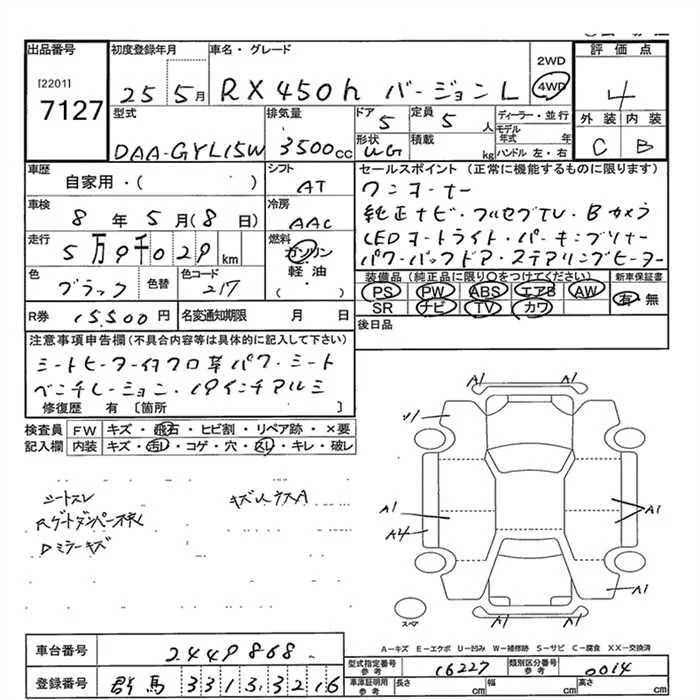 出品番号 初度登録年月 車名・グレード 2WD 評価点
[2201] 7127 25 5月 RX450h バージョンL 4WD 4
型式 排気量 ドア 定員 ディーラー・並行 外装 内装
DAA-GYL15W 3500cc 5 5人 モデル年式 年 C B
形状 積載 ハンドル 左・右
UG kg
車歴 シフト セールスポイント (正常に機能するものに限ります)
自家用・( ) AT ワンオーナー
車検 冷房 純正ナビ・フルセグTV・Bカメラ
8年5月(8日) AAC LEDヘッドライト・パーキングソナー
走行 燃料 パワーバックドア・ステアリングヒーター
5万9千029km ガソリン
軽油
( )
色 色替 色コード 装備品(純正品に限り○をつけてください) 新車保証書
ブラック 217 PS PW ABS エアB AW 有 無
SR ナビ TV カワ
R券 15,500円 名変通知期限 月 日 後日品
注意事項申告欄(不具合内容等は具体的に記入して下さい)
シートヒーター付クロ革パワーシート
ベンチレーション・19インチアルミ
修復歴 有 [箇所 ]
検査員 FW キズ・飛石・ヒビ割・リペア跡・×要
記入欄 内装 キズ・汚レ・コゲ・穴・スレ・キレ・破レ
シートスレ キズ
Rゲートダンパー
Dミラーキズ
A1 A1
A1 A1
A4
A1
A1 A1
スペア
A－キズ E－エクボ U－凹み W－補修跡 S－サビ C－腐食 XX－交換済
車台番号 2449868
型式指定番号 参考 16227 類別区分番号 参考 0014
登録番号 群馬 331 3 3216
車庫証明用 参考 長さ cm 幅 cm 高さ cm